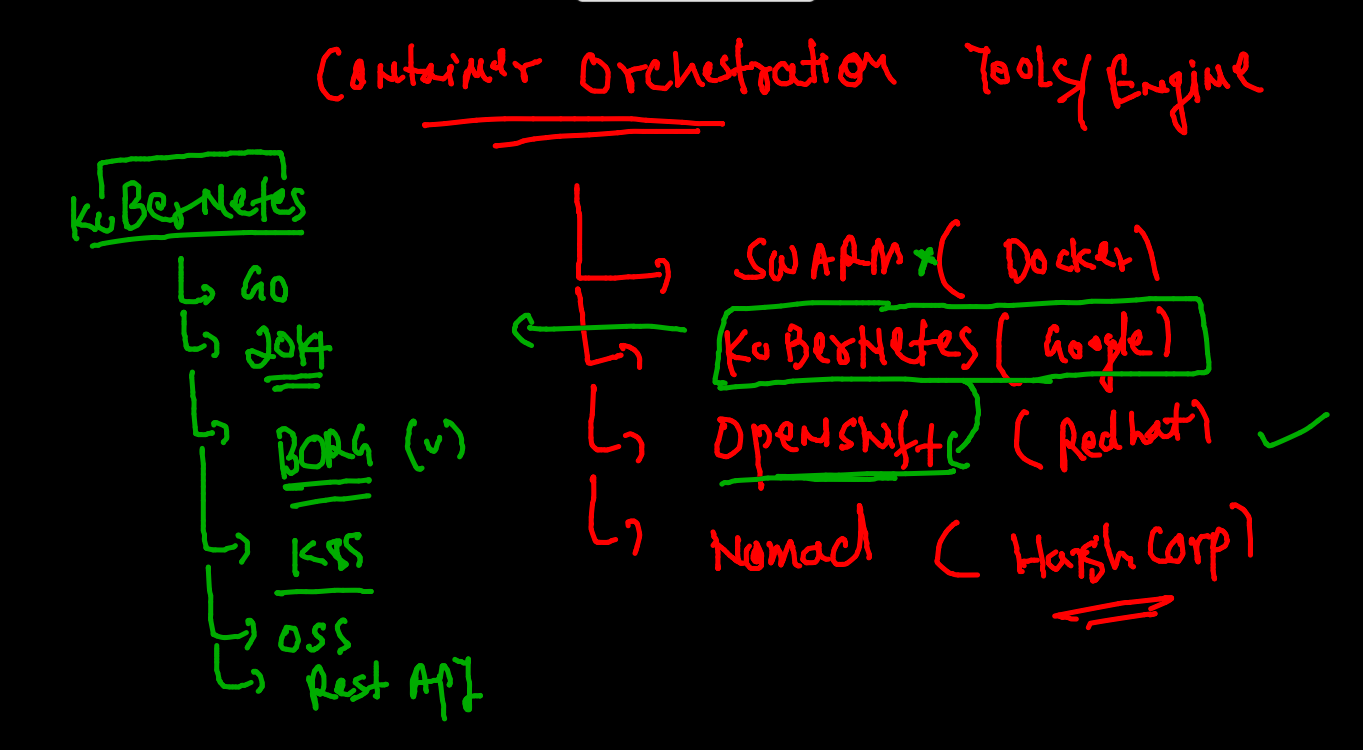 Container Orchestration Tools/Engine
KuBerNetes
GO
2014
BORG (v)
K8S
OSS
Rest API
SWARM * (Docker)
KuBerNetes (Google)
Openshift (Redhat)
Nomad (Hashi Corp)